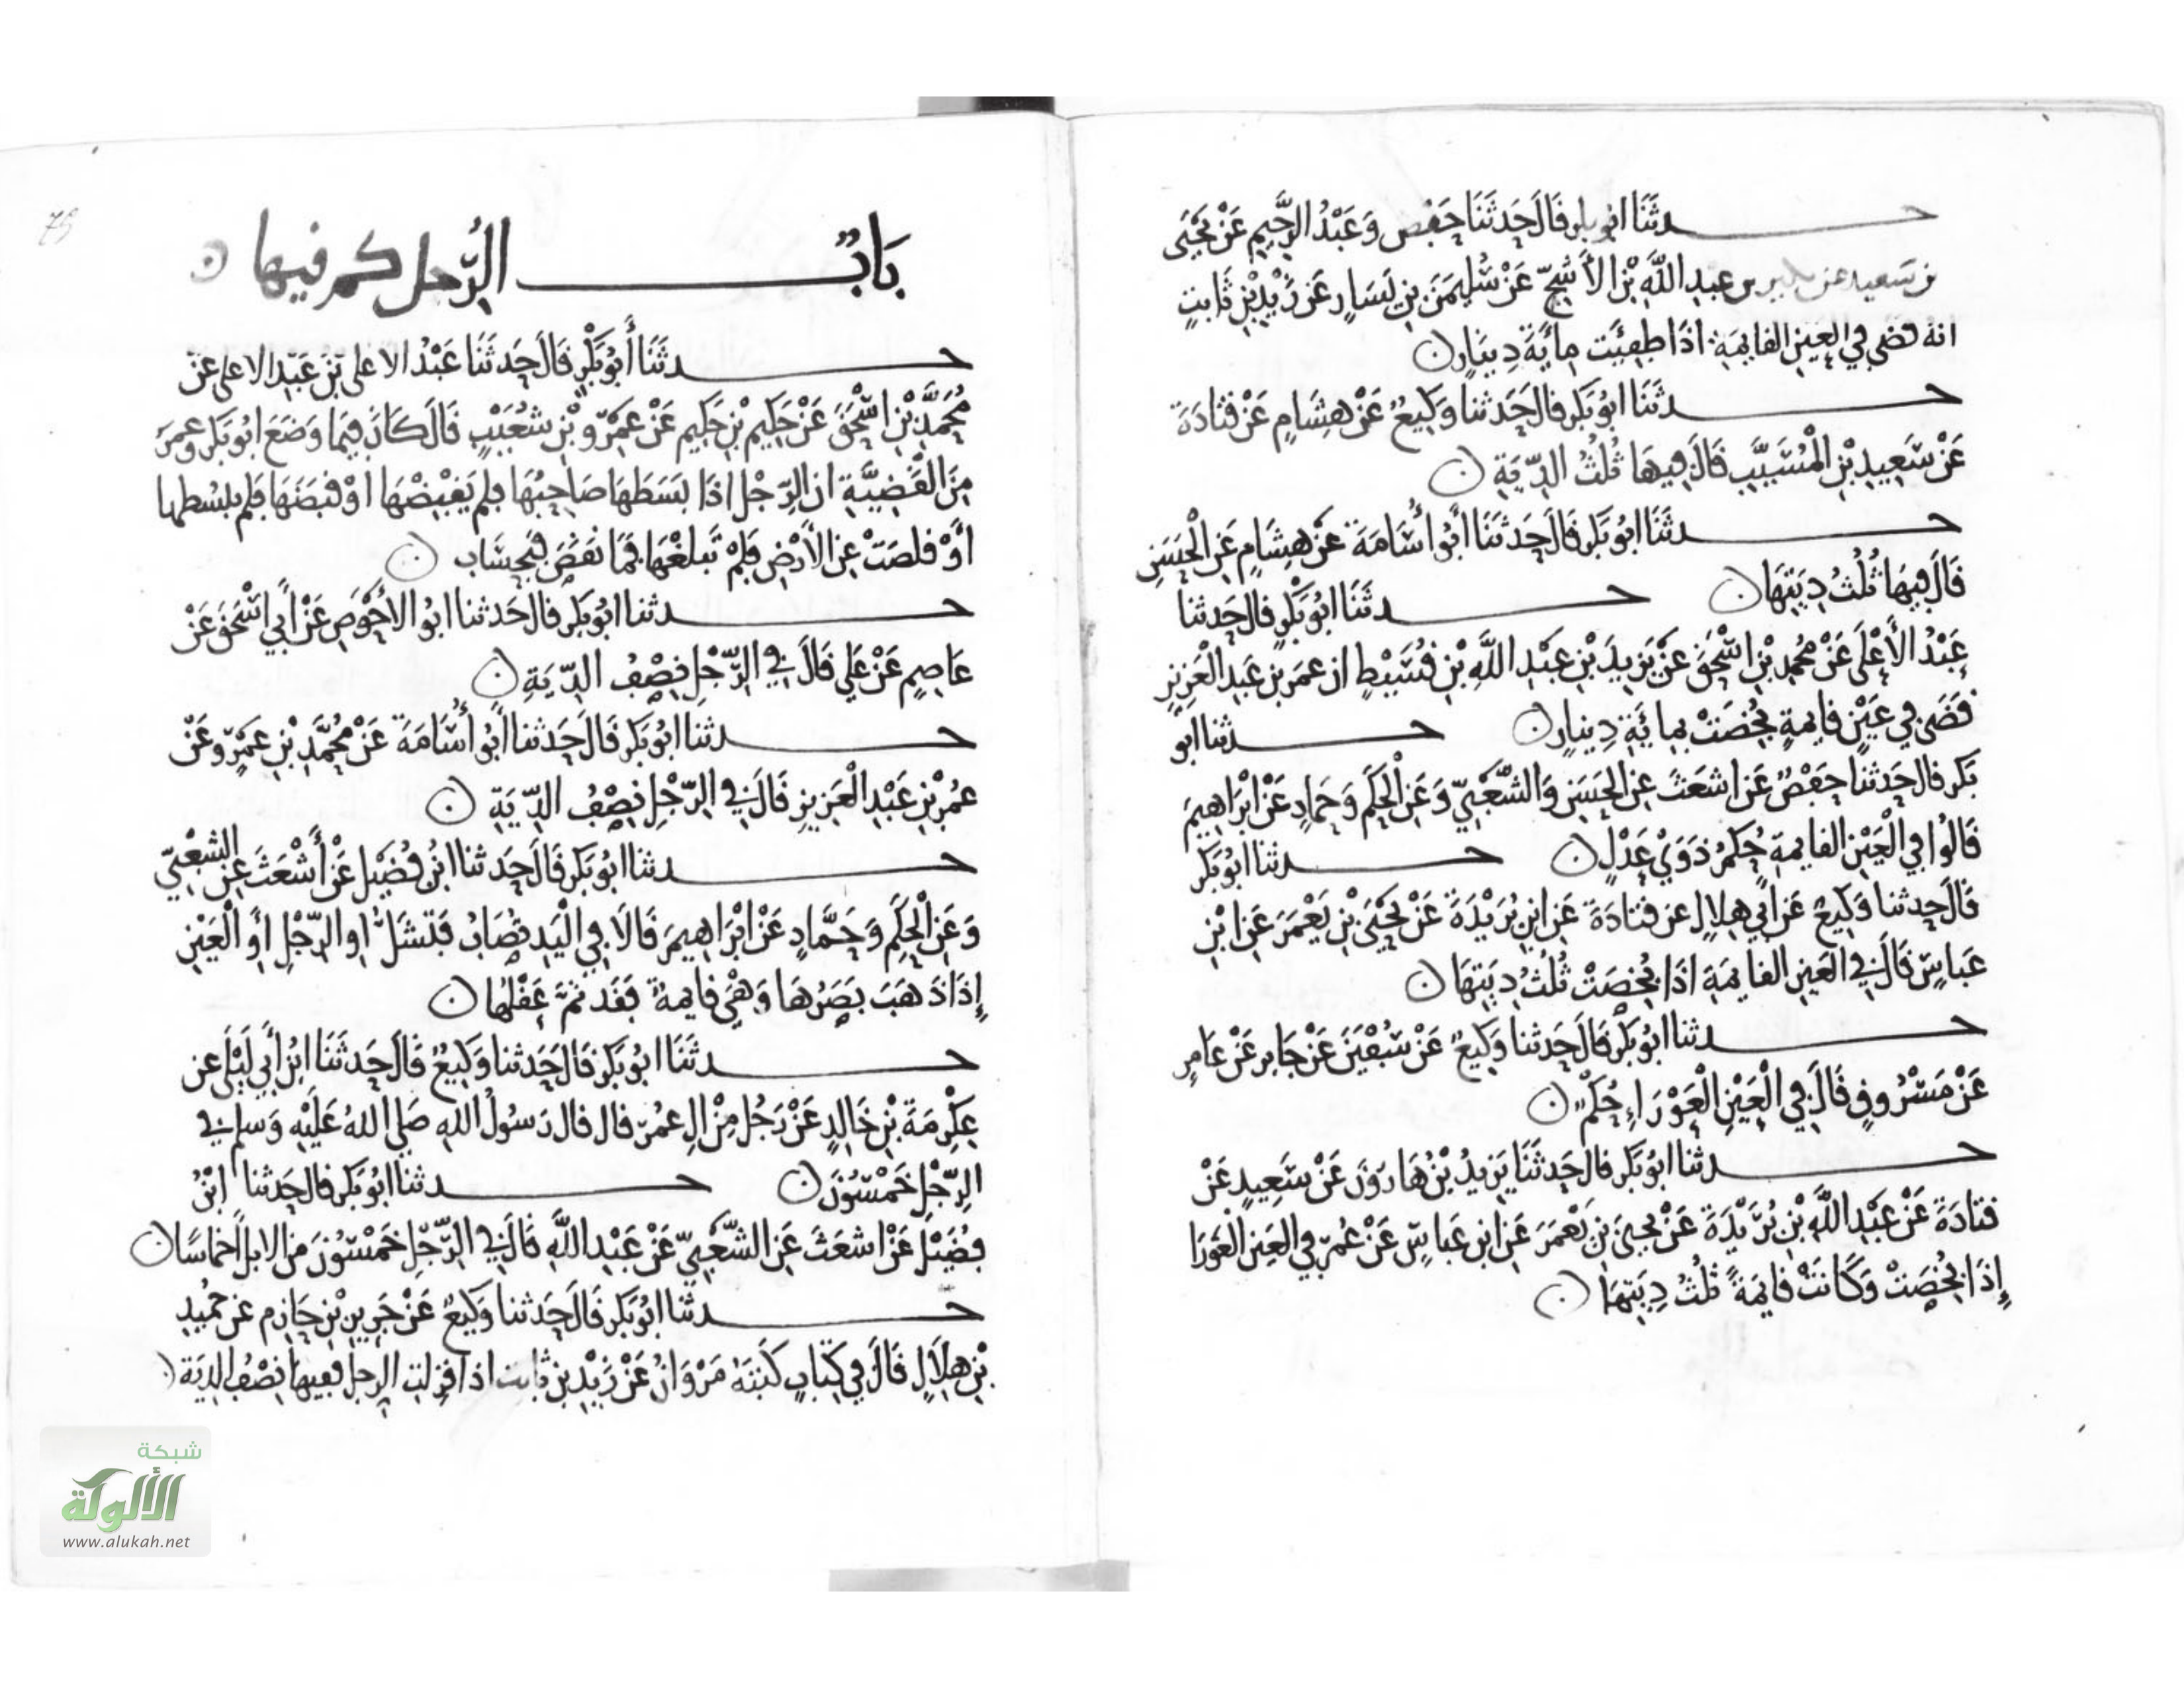 حدثنا ابو بكر قال حدثنا حفص وعبد الرحيم عن يحيى
بن سعيد عن بكير بن عبد الله بن الأشج عن سليمن بن يسار عن زيد بن ثابت
انه قضى في العين القايمة اذا طفيت ماية دينار
حدثنا ابو بكر قال حدثنا وكيع عن هشام عن قتادة
عن سعيد بن المسيب قال فيها ثلث الدية
حدثنا ابو بكر قال حدثنا أبو أسامة عن هشام عن الحسن
قال فيها ثلث ديتها حدثنا ابو بكر قال حدثنا
عبد الأعلى عن محمد بن اسحق عن يزيد بن عبد الله بن قسيط ان عمر بن عبد العزيز
قضى في عين قايمة بخصت بماية دينار حدثنا ابو
بكر قال حدثنا حفص عن اشعث عن الحسن والشعبي وعن الحكم وحماد عن ابراهيم
قالوا في العين القايمة حكم ذوي عدل حدثنا ابو بكر
قال حدثنا وكيع عن أبي هلال عن قتادة عن ابن بريدة عن يحيى بن يعمر عن ابن
عباس قال في العين القايمة اذا بخصت ثلث ديتها
حدثنا ابو بكر قال حدثنا وكيع عن سفين عن جابر عن عامر
عن مسروق قال في العين العوراء حكم
حدثنا ابو بكر قال حدثنا يزيد بن هارون عن سعيد عن
قتادة عن عبد الله بن بريدة عن يحيى بن يعمر عن ابن عباس عن عمر في العين العورا
إذا بخصت وكانت قايمة ثلث ديتها
75
باب الرجل كم فيها
حدثنا أبو بكر قال حدثنا عبد الاعلى بن عبد الاعلى عن
محمد بن اسحق عن حكيم بن حكيم عن عمرو بن شعيب قال كان فيما وضع ابو بكر وعمر
من القضية ان الرجل اذا بسطها صاحبها فلم يقبضها أو قبضها فلم يبسطها
أو قلصت عن الأرض فلم تبلغها فما نقص فبحساب
حدثنا ابو بكر قال حدثنا ابو الأحوص عن أبي اسحق عن
عاصم عن علي قال في الرجل نصف الدية
حدثنا ابو بكر قال حدثنا أبو أسامة عن محمد بن عمرو عن
عمر بن عبد العزيز قال في الرجل نصف الدية
حدثنا ابو بكر قال حدثنا ابن فضيل عن أشعث عن الشعبي
وعن الحكم وحماد عن ابراهيم قالا في اليد تصاب فتشل او الرجل أو العين
إذا ذهب بصرها وهي قايمة فقد تم عقلها
حدثنا ابو بكر قال حدثنا وكيع قال حدثنا ابن أبي ليلى عن
عكرمة بن خالد عن رجل من ال عمر قال قال رسول الله صلى الله عليه وسلم في
الرجل خمسون حدثنا ابو بكر قال حدثنا ابن
فضيل عن اشعث عن الشعبي عن عبد الله قال في الرجل خمسون من الابل أخماسا
حدثنا ابو بكر قال حدثنا وكيع عن جرير بن حازم عن حميد
بن هلال قال في كتاب كتبه مروان عن زيد بن ثابت اذا قزلت الرجل ففيها نصف الدية
شبكة
الألوكة
www.alukah.net